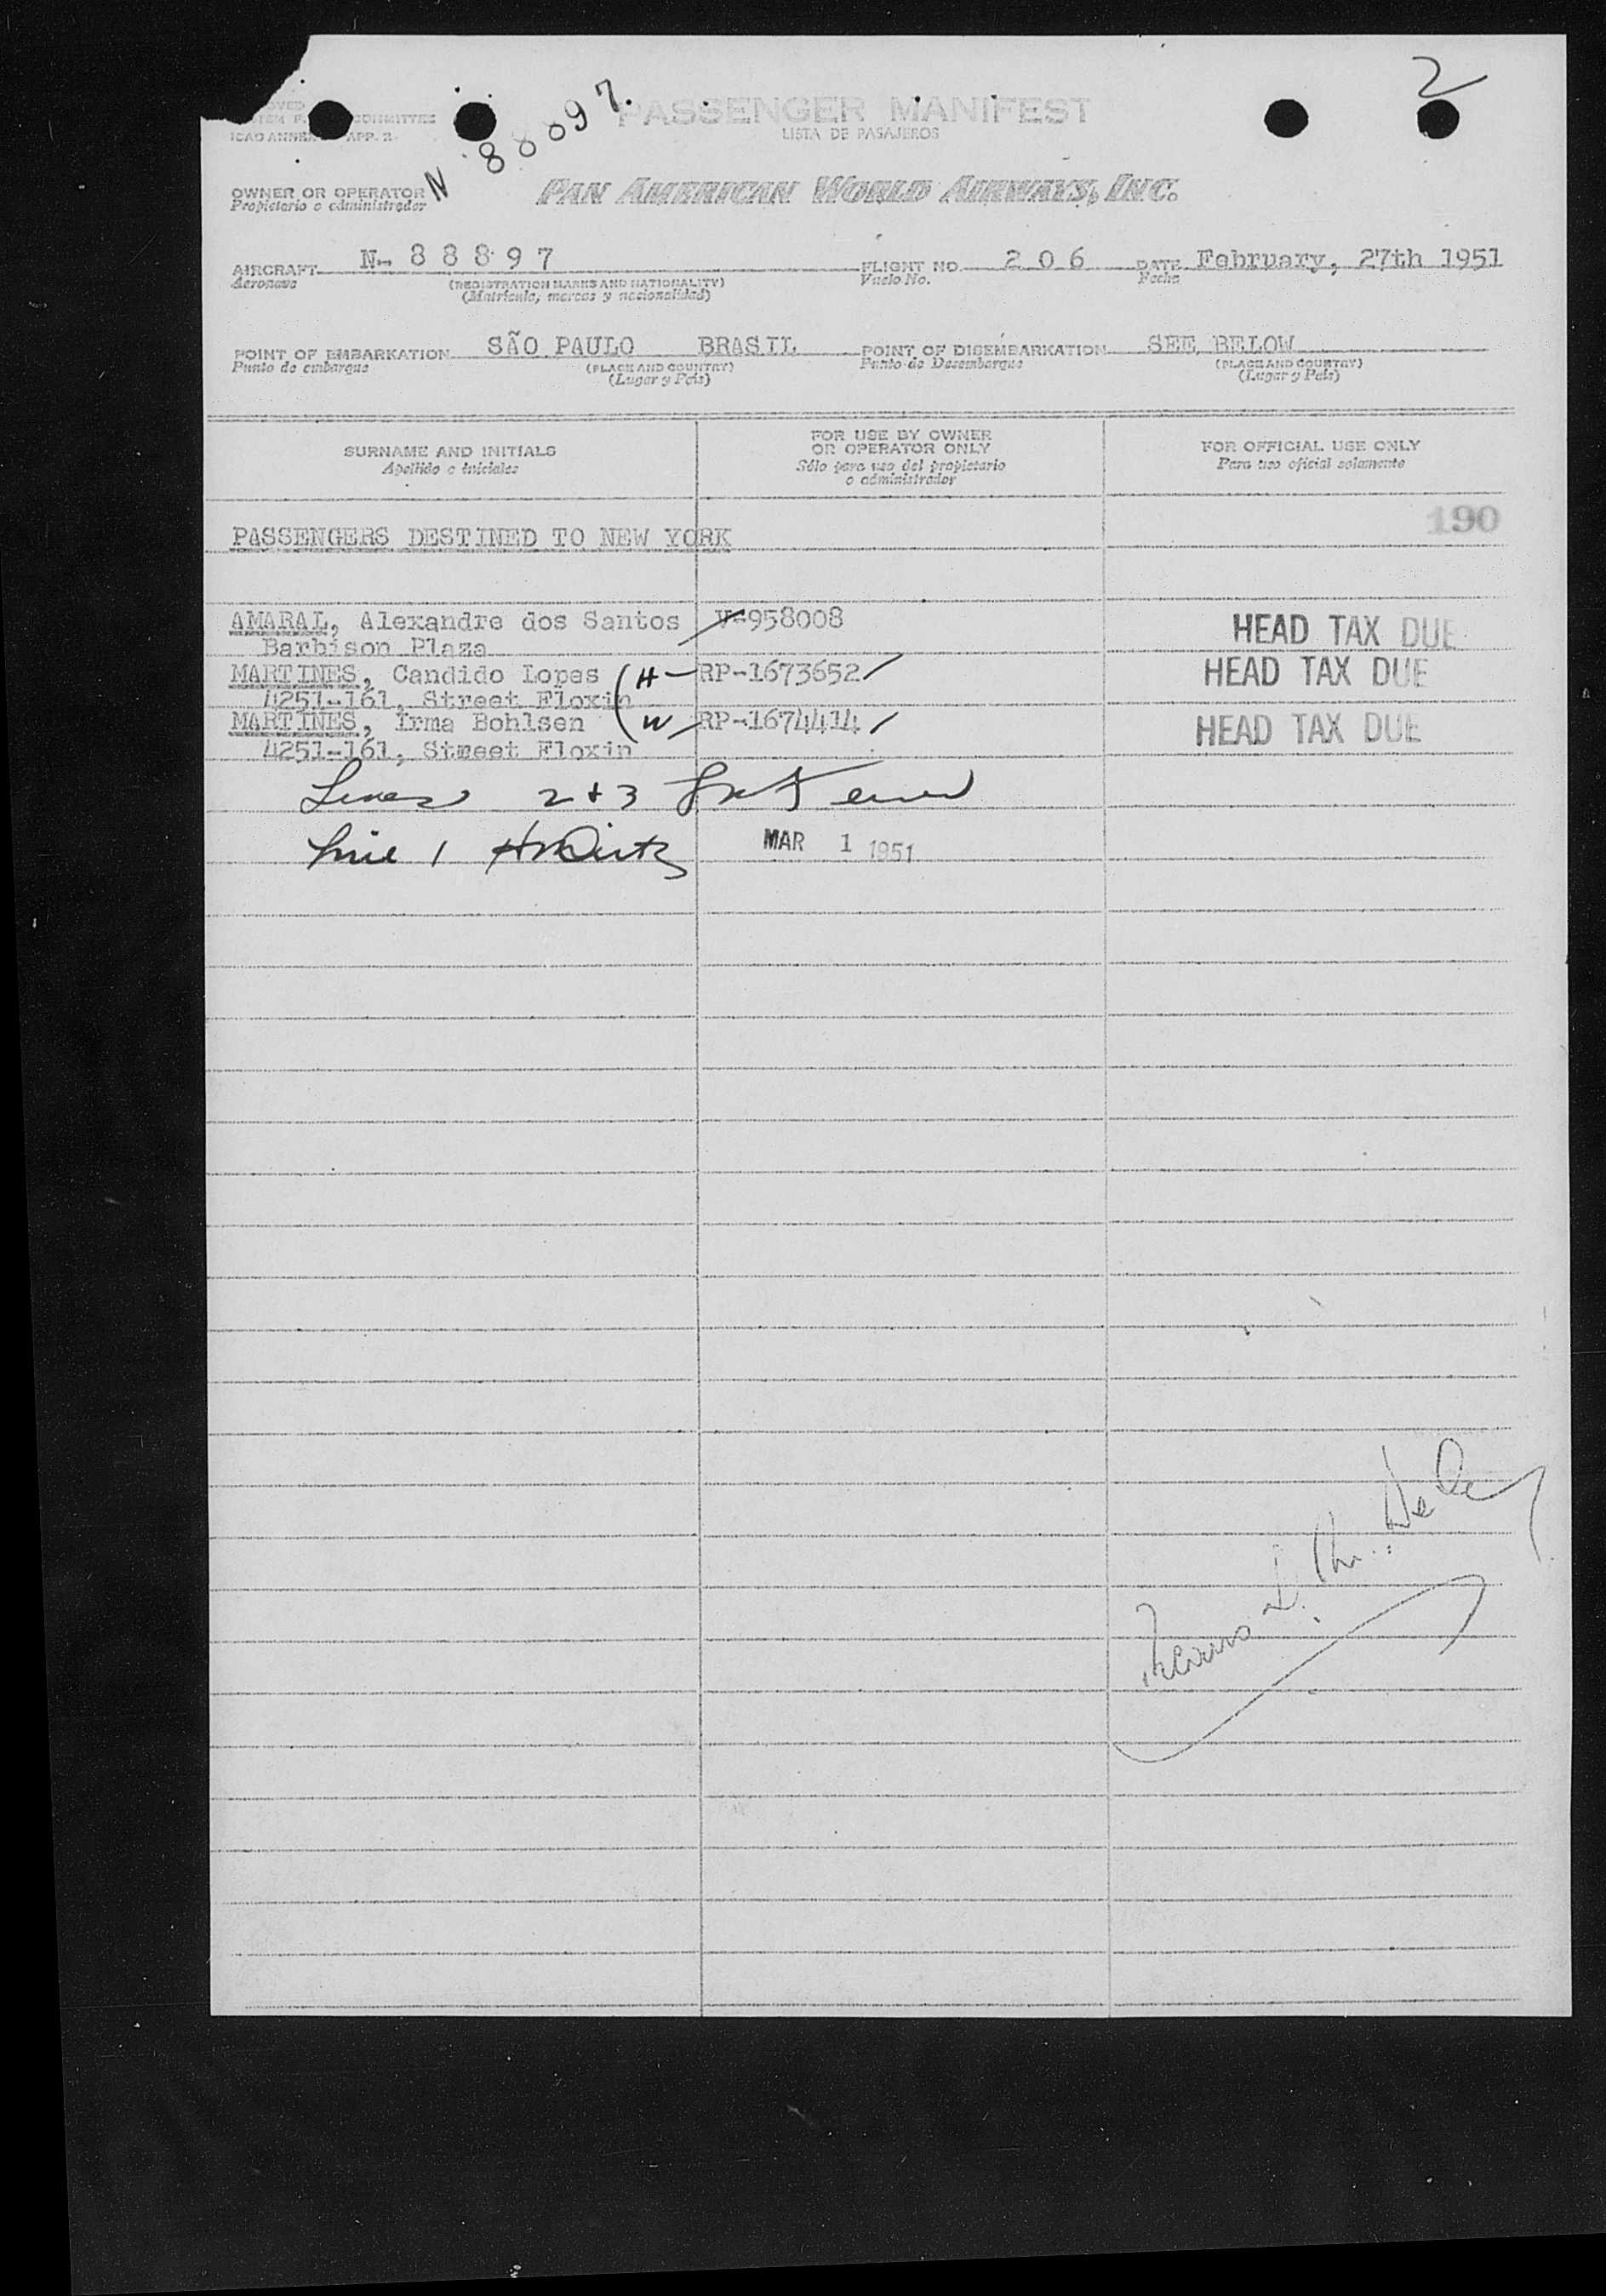 2
N 88897.
PASSENGER MANIFEST
LISTA DE PASAJEROS
COMMITTEE
ICAO ANNEX APP. 2
OWNER OR OPERATOR
Propietario o administrador
PAN AMERICAN WORLD AIRWAYS, INC.
AIRCRAFT N- 8 8 8 9 7 FLIGHT NO. 2 0 6 DATE February, 27th 1951
Aeronave (REGISTRATION MARKS AND NATIONALITY) Vuelo No. Fecha
(Matricula, marcas y nacionalidad)
POINT OF EMBARKATION SÃO PAULO BRASIL POINT OF DISEMBARKATION SEE BELOW
Punto de embarque (PLACE AND COUNTRY) Punto de Desembarque (PLACE AND COUNTRY)
(Lugar y País) (Lugar y País)
SURNAME AND INITIALS
Apellido e iniciales
FOR USE BY OWNER
OR OPERATOR ONLY
Sólo para uso del propietario
o administrador
FOR OFFICIAL USE ONLY
Para uso oficial solamente
190
PASSENGERS DESTINED TO NEW YORK
AMARAL, Alexandre dos Santos V-958008 HEAD TAX DUE
Barbison Plaza
MARTINES, Candido Lopes (H- RP-1673652 HEAD TAX DUE
4251-161, Street Floxin
MARTINES, Irma Bohlsen (W RP-1674414 HEAD TAX DUE
4251-161, Stmeet Floxin
Lines 2+3
Line 1 MAR 1 1951